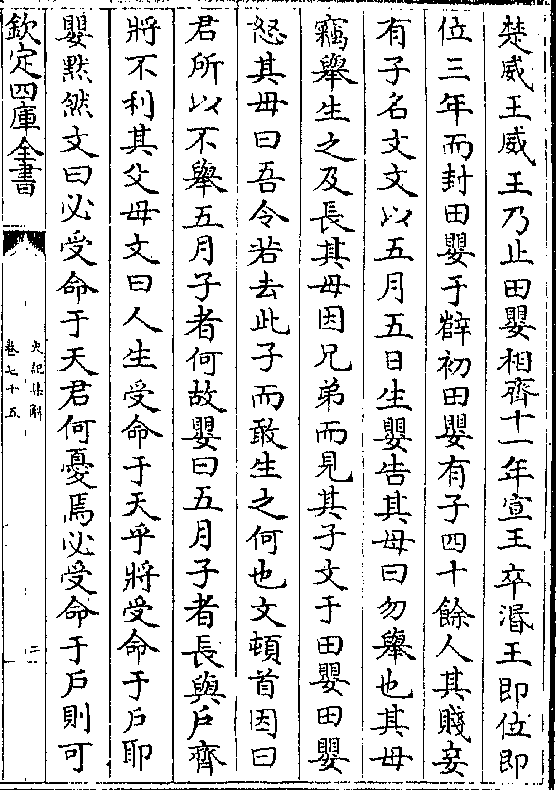 楚威王威王乃止田嬰相齊十一年宣王卒湣王即位即
位三年而封田嬰于薛初田嬰有子四十餘人其賤妾
有子名文文以五月五日生嬰告其母曰勿舉也其母
竊舉生之及長其母因兄弟而見其子文于田嬰田嬰
怒其母曰吾令若去此子而敢生之何也文頓首因曰
君所以不舉五月子者何故嬰曰五月子者長與戶齊
將不利其父母文曰人生受命于天乎將受命于戶耶
嬰黙然文曰必受命于天君何憂焉必受命于戶則可
欽定四庫全書
史記集解
卷七十五
二